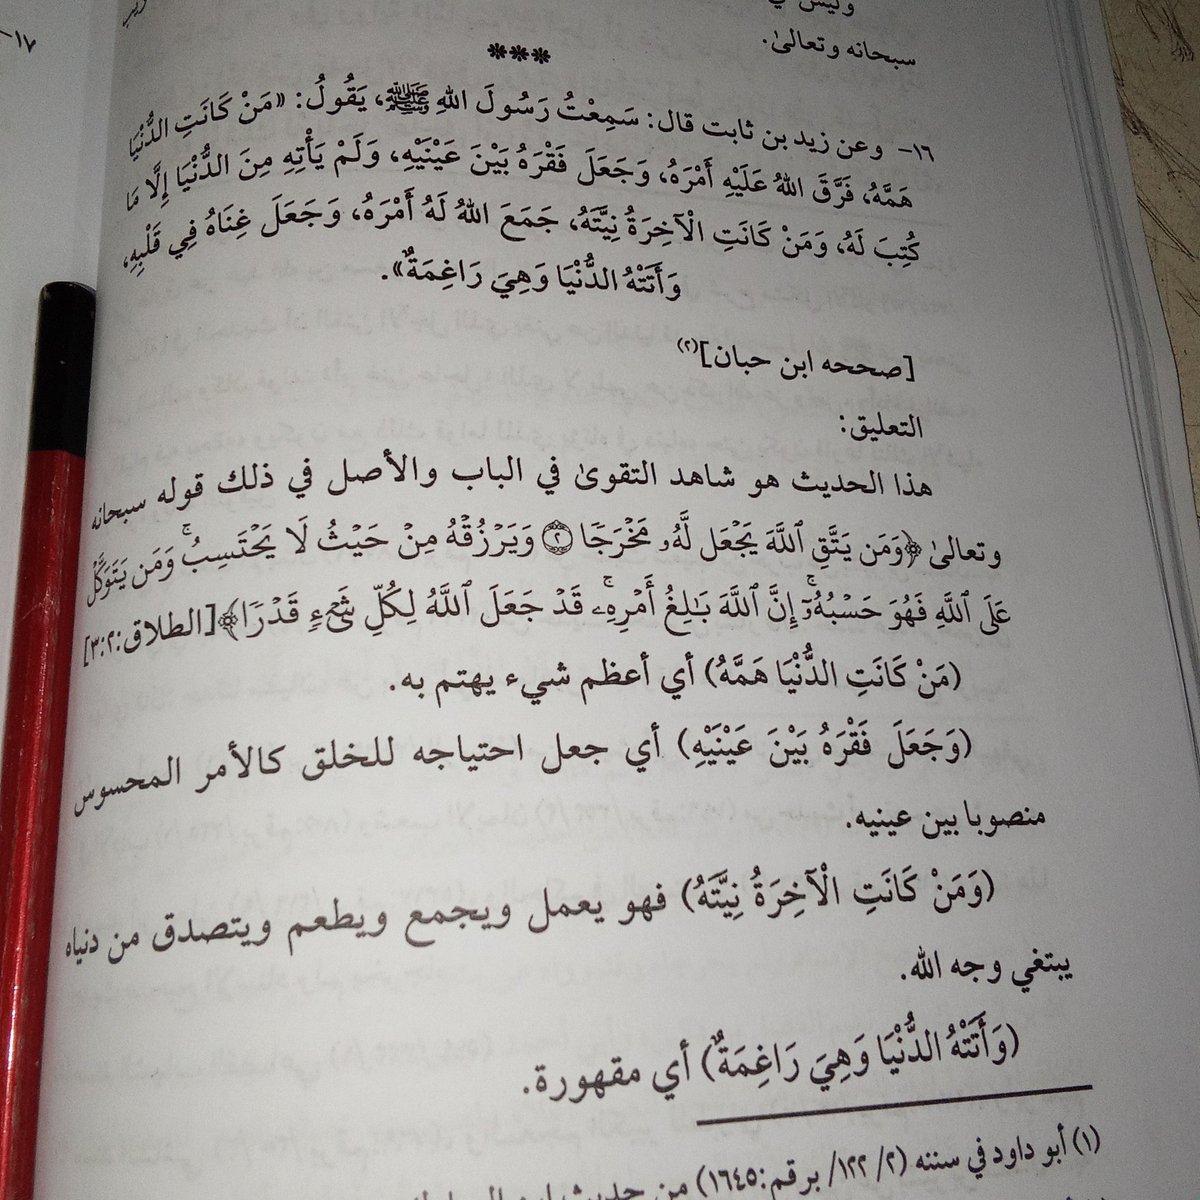 وليس في
سبحانه وتعالىٰ.
***
١٦- وعن زيد بن ثابت قال: سَمِعْتُ رَسُولَ اللهِ ﷺ، يَقُولُ: «مَنْ كَانَتِ الدُّنْيَا
هَمَّهُ، فَرَّقَ اللهُ عَلَيْهِ أَمْرَهُ، وَجَعَلَ فَقْرَهُ بَيْنَ عَيْنَيْهِ، وَلَمْ يَأْتِهِ مِنَ الدُّنْيَا إِلَّا مَا
كُتِبَ لَهُ، وَمَنْ كَانَتِ الْآخِرَةُ نِيَّتَهُ، جَمَعَ اللهُ لَهُ أَمْرَهُ، وَجَعَلَ غِنَاهُ فِي قَلْبِهِ،
وَأَتَتْهُ الدُّنْيَا وَهِيَ رَاغِمَةٌ».
[صححه ابن حبان](٢)
التعليق:
هذا الحديث هو شاهد التقوىٰ في الباب والأصل في ذلك قوله سبحانه
وتعالىٰ ﴿وَمَن يَتَّقِ ٱللَّهَ يَجْعَل لَّهُۥ مَخْرَجًا ٢ وَيَرْزُقْهُ مِنْ حَيْثُ لَا يَحْتَسِبُ ۚ وَمَن يَتَوَكَّلْ
عَلَى ٱللَّهِ فَهُوَ حَسْبُهُۥٓ ۚ إِنَّ ٱللَّهَ بَـٰلِغُ أَمْرِهِۦ ۚ قَدْ جَعَلَ ٱللَّهُ لِكُلِّ شَىْءٍ قَدْرًا﴾ [الطلاق:٣:٢]
(مَنْ كَانَتِ الدُّنْيَا هَمَّهُ) أي أعظم شيء يهتم به.
(وَجَعَلَ فَقْرَهُ بَيْنَ عَيْنَيْهِ) أي جعل احتياجه للخلق كالأمر المحسوس
منصوبا بين عينيه.
(وَمَنْ كَانَتِ الْآخِرَةُ نِيَّتَهُ) فهو يعمل ويجمع ويطعم ويتصدق من دنياه
يبتغي وجه الله.
(وَأَتَتْهُ الدُّنْيَا وَهِيَ رَاغِمَةٌ) أي مقهورة.
(١) أبو داود في سننه (٢/ ١٢٢/ برقم:١٦٤٥) من حديث
١٧-